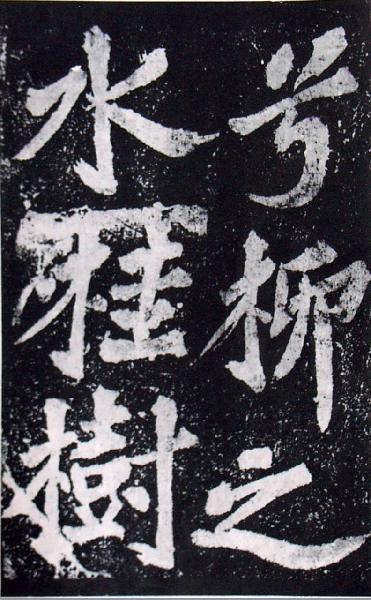 兮柳之
水桂樹